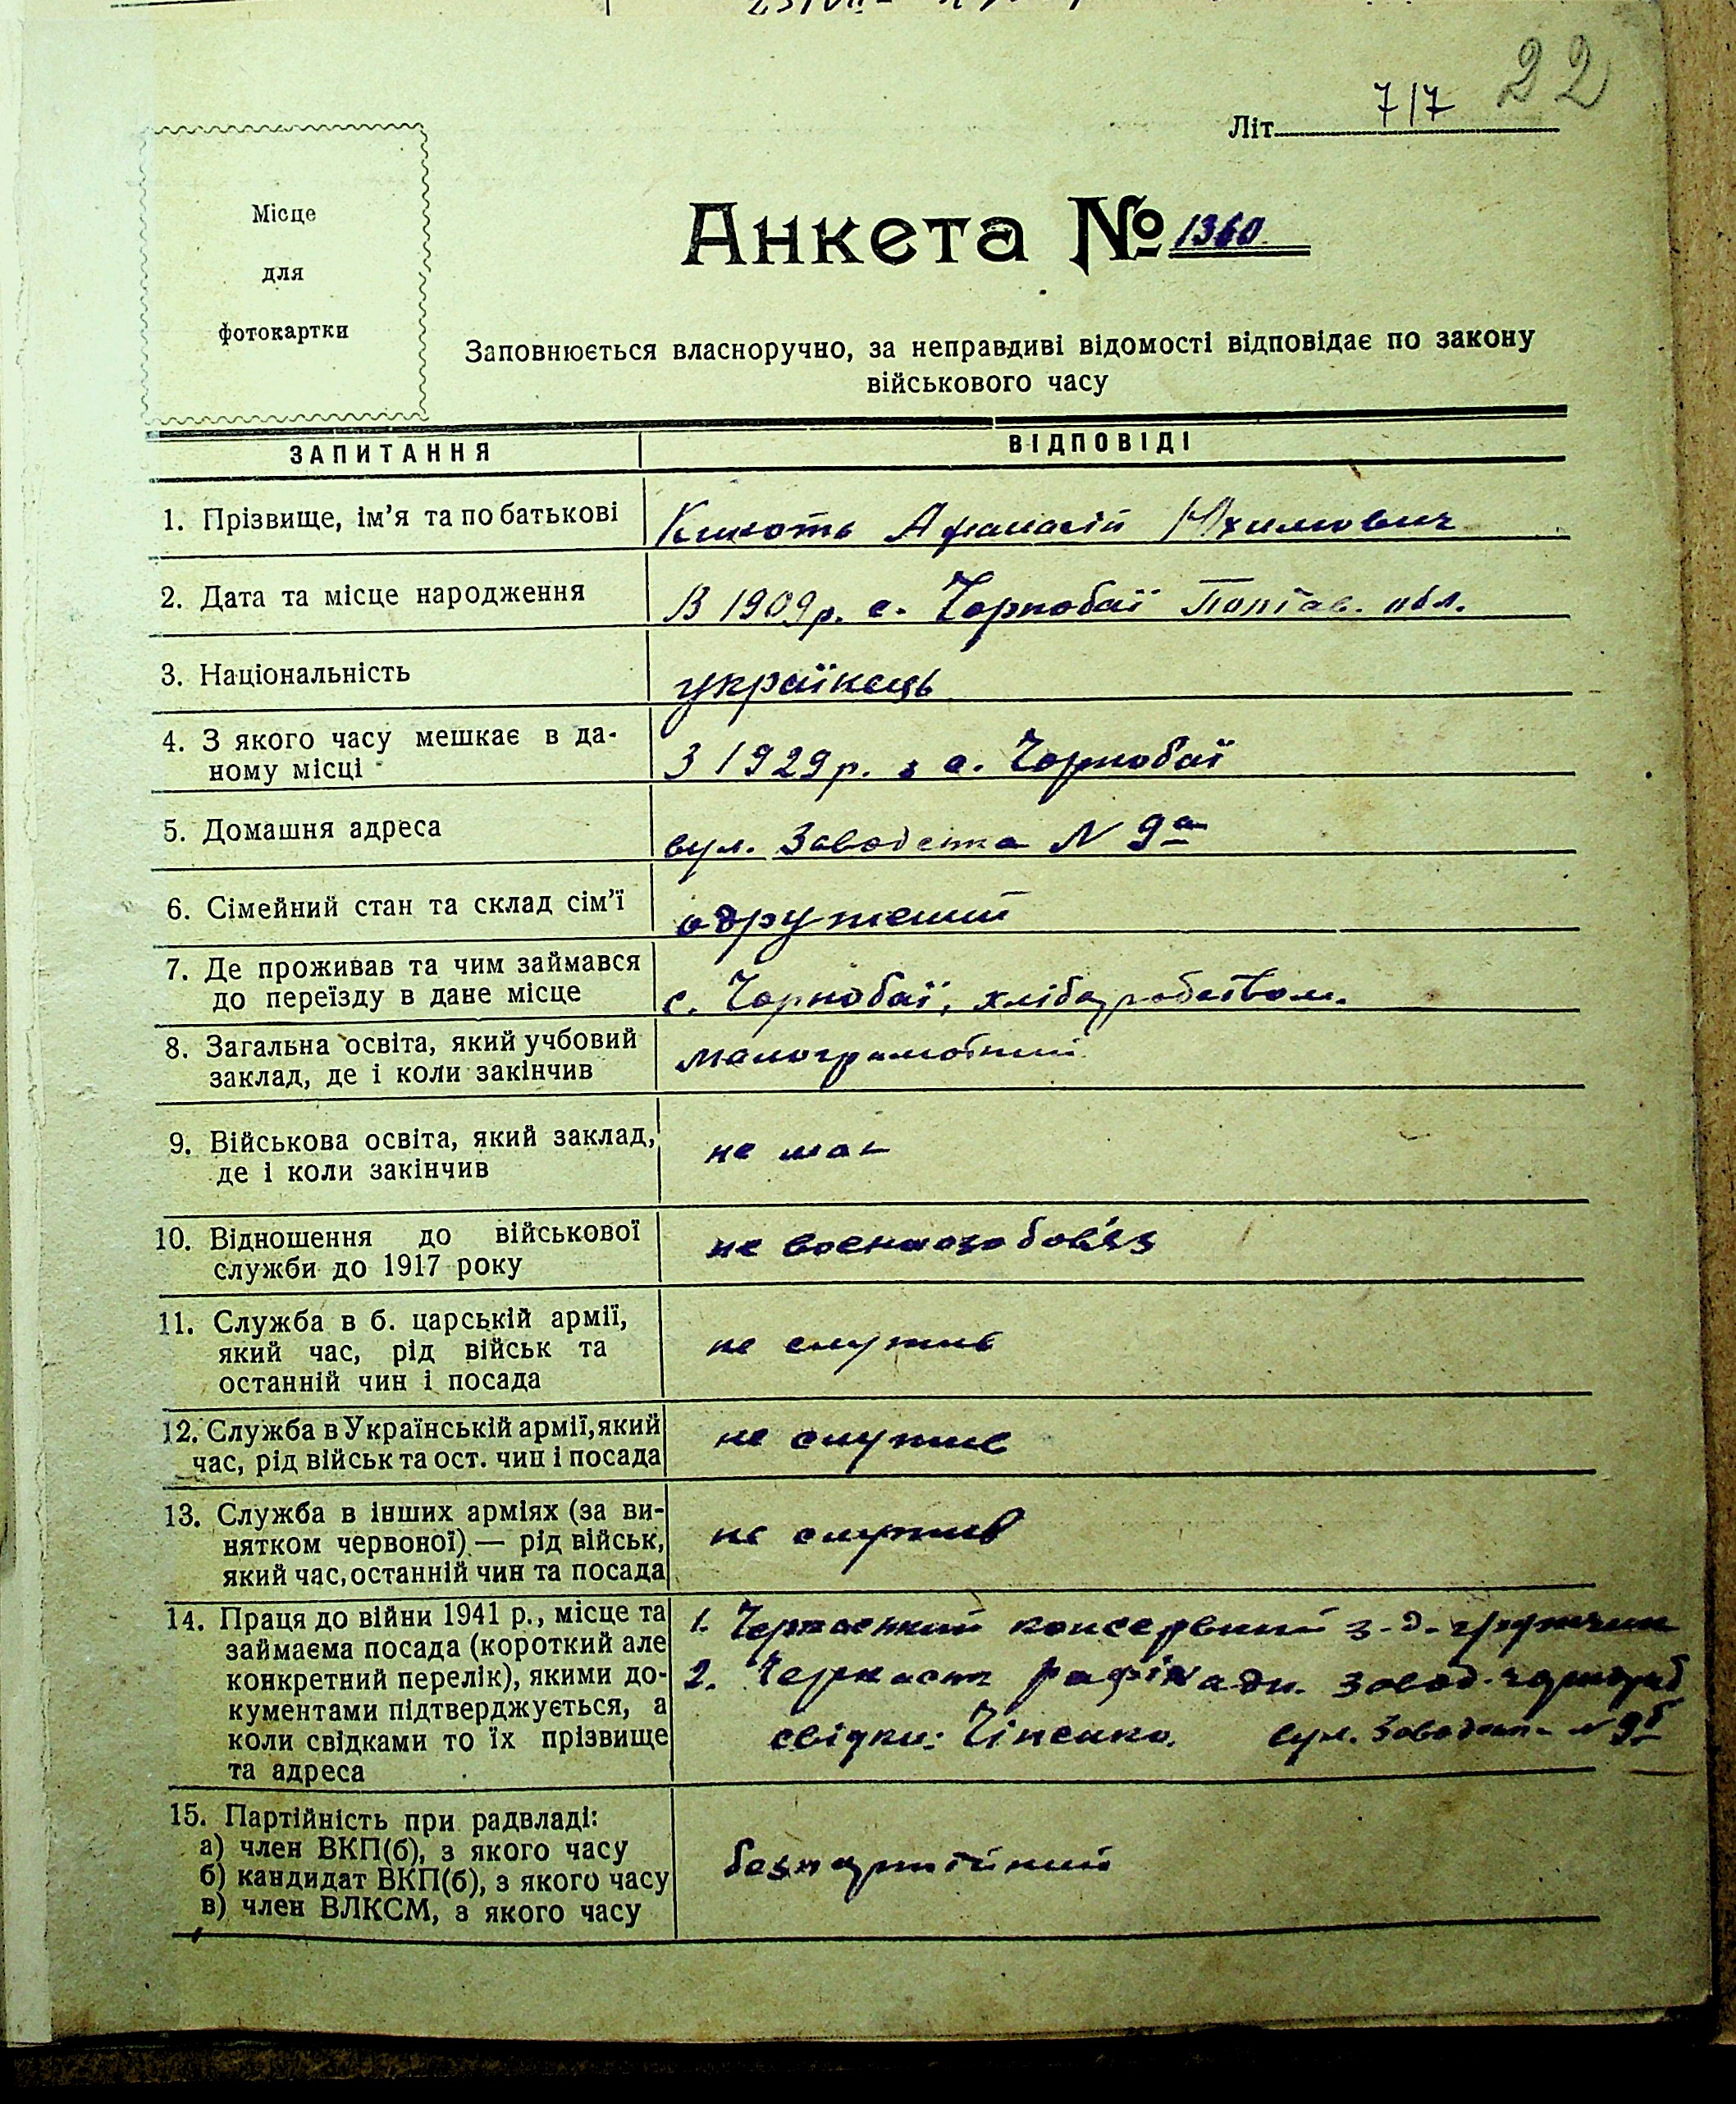 22
Літ. 7/7
Місце
для
фотокартки
Анкета № 1360
Заповнюється власноручно, за неправдиві відомості відповідає по закону
військового часу
ЗАПИТАННЯ ВІДПОВІДІ
1. Прізвище, ім'я та по батькові Афанасій
2. Дата та місце народження В 1909 р. с. Чорнобаї Полтав. обл.
3. Національність українець
4. З якого часу мешкає в да-
ному місці З 1929 р. з с. Чорнобаї
5. Домашня адреса вул. Заводська N 9а
6. Сімейний стан та склад сім'ї одружений
7. Де проживав та чим займався
до переїзду в дане місце с. Чорнобаї, хліборобством.
8. Загальна освіта, який учбовий малограмотний
заклад, де і коли закінчив
9. Військова освіта, який заклад, не має
де і коли закінчив
10. Відношення до військової не воєннозобов'яз
служби до 1917 року
11. Служба в б. царській армії,
який час, рід військ та не служив
останній чин і посада
12. Служба в Українській армії, який не служив
час, рід військ та ост. чин і посада
13. Служба в інших арміях (за ви-
нятком червоної) — рід військ, не служив
який час, останній чин та посада
14. Праця до війни 1941 р., місце та 1. Черкаський консервний з-д.
займаєма посада (короткий але
конкретний перелік), якими до- 2. Черкаськ. рафінадн. завод.
кументами підтверджується, а
коли свідками то їх прізвище свідки: вул. Заводськ. N 9б
та адреса
15. Партійність при радвладі:
а) член ВКП(б), з якого часу
б) кандидат ВКП(б), з якого часу безпартійний
в) член ВЛКСМ, з якого часу